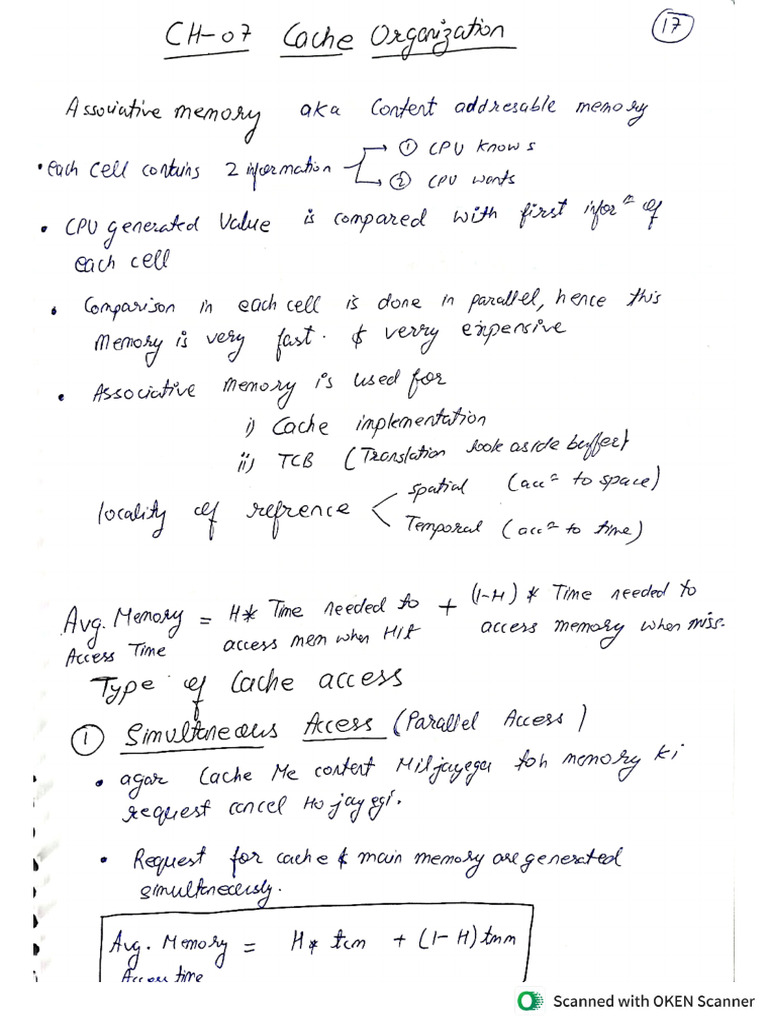 CH-07 Cache Organization
17
Associative memory aka Content addresable memory
• Each cell contains 2 information
① CPU knows
② CPU wants
• CPU generated value is compared with first inforⁿ of
each cell
• Comparison in each cell is done in parallel, hence this
memory is very fast. & verry expensive
• Associative memory is used for
i) Cache implementation
ii) TCB (Translation look aside buffer)
locality of refrence
Spatial (accⁿ to space)
Temporal (accⁿ to time)
Avg. Memory = H* Time needed to + (1-H) * Time needed to
Access Time access mem when Hit access memory when miss.
Type of Cache access
① Simultaneous Access (Parallel Access)
• agar Cache Me content Mil jayega toh memory ki
request cancel Ho jayegi.
• Request for cache & main memory are generated
simultaneously.
Avg. Memory = H* tcm + (1-H) tmm
Access time
Scanned with OKEN Scanner